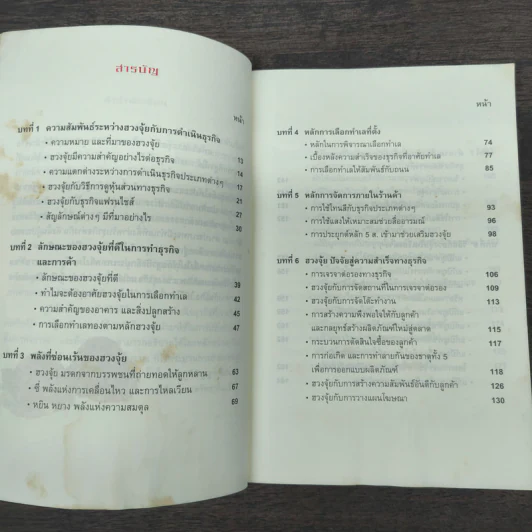 สารบัญ
หน้า
บทที่ 1 ความสัมพันธ์ระหว่างฮวงจุ้ยกับการดำเนินธุรกิจ
• ความหมาย และที่มาของฮวงจุ้ย 13
• ฮวงจุ้ยมีความสำคัญอย่างไรต่อธุรกิจ 14
• ความแตกต่างระหว่างการดำเนินธุรกิจประเภทต่างๆ 17
• ฮวงจุ้ยกับวิธีการดูหุ้นส่วนทางธุรกิจ 21
• ฮวงจุ้ยกับธุรกิจแฟรนไชส์ 27
• สัญลักษณ์ต่างๆ มีที่มาอย่างไร 30
บทที่ 2 ลักษณะของฮวงจุ้ยที่ดีในการทำธุรกิจ
และการค้า
• ลักษณะของฮวงจุ้ยที่ดี 39
• ทำไมจะต้องอาศัยฮวงจุ้ยในการเลือกทำเล 42
• ความสำคัญของอาคาร และสิ่งปลูกสร้าง 45
• การเลือกทำเลทองตามหลักฮวงจุ้ย 47
บทที่ 3 พลังที่ซ่อนเร้นของฮวงจุ้ย
• ฮวงจุ้ย มรดกจากบรรพชนที่ถ่ายทอดให้ลูกหลาน 63
• ชี่ พลังแห่งการเคลื่อนไหว และการไหลเวียน 67
• หยิน หยาง พลังแห่งความสมดุล 69
หน้า
บทที่ 4 หลักการเลือกทำเลที่ตั้ง
• หลักในการพิจารณาเลือกทำเล 74
• เบื้องหลังความสำเร็จของธุรกิจที่อาศัยทำเล 77
• การเลือกทำเลให้สัมพันธ์กับถนน 85
บทที่ 5 หลักการจัดการภายในร้านค้า
• การใช้โทนสีกับธุรกิจประเภทต่างๆ 93
• การใช้แสงให้เหมาะสมช่วยสื่ออารมณ์ 96
• การประยุกต์หลัก 5 ส. เข้ามาช่วยเสริมฮวงจุ้ย 98
บทที่ 6 ฮวงจุ้ย ปัจจัยสู่ความสำเร็จทางธุรกิจ
• การเจรจาต่อรองทางธุรกิจ 106
• ฮวงจุ้ยกับการจัดสถานที่ในการเจรจาต่อรอง 109
• ฮวงจุ้ยกับการจัดโต๊ะทำงาน 113
• การสร้างความพึงพอใจให้กับลูกค้า
และกลยุทธ์สร้างผลิตภัณฑ์ใหม่สู่ตลาด 115
• กระบวนการตัดสินใจซื้อของลูกค้า 116
• การก่อเกิด และการทำลายกันของธาตุทั้ง 5
เพื่อการออกแบบผลิตภัณฑ์ 118
• ฮวงจุ้ยกับการสร้างความสัมพันธ์อันดีกับลูกค้า 126
• ฮวงจุ้ยกับการวางแผนโฆษณา 130